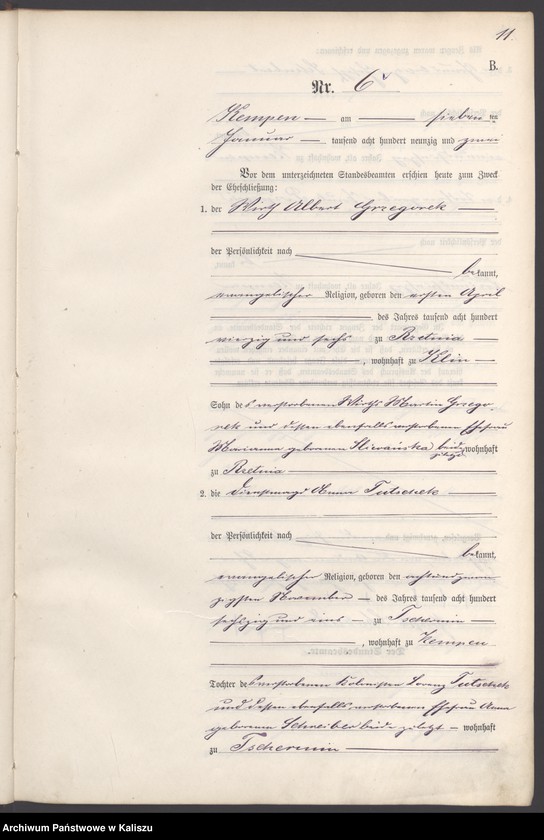 11.
B.
Nr. 6
Kempen am sieben ten
Januar tausend acht hundert neunzig und zwei
Vor dem unterzeichneten Standesbeamten erschien heute zum Zweck
der Eheschließung:
1. der Wirth Albert Grzegorek
der Persönlichkeit nach
bekannt,
evangelischer Religion, geboren den ersten April
des Jahres tausend acht hundert
vierzig und sechs zu Rzetnia
, wohnhaft zu Klin
Sohn des verstorbenen Wirths Martin Grzego-
rek und dessen ebenfalls verstorbenen Ehefrau
Marianna geborenen beide zuletzt wohnhaft
zu Rzetnia
2. die Dienstmagd Anna Tutschek
der Persönlichkeit nach
bekannt,
evangelischer Religion, geboren den achtundzwan-
zigsten November des Jahres tausend acht hundert
sechszig und eins zu Tschermin
, wohnhaft zu Kempen
Tochter des verstorbenen Kolonisten Lorenz Tutschek
und dessen ebenfalls verstorbenen Ehefrau Anna
geborenen Schreiber beide zuletzt wohnhaft
zu Tschermin
Archiwum Państwowe w Kaliszu